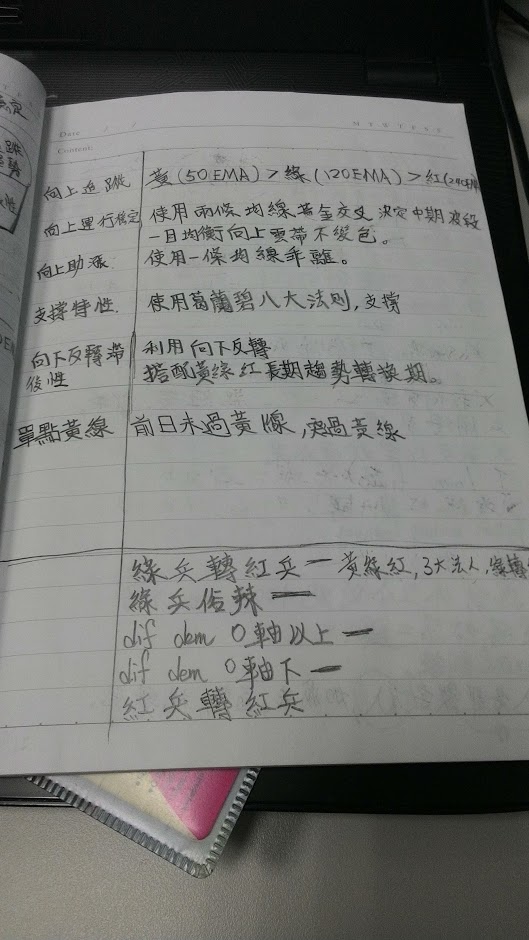 Date / /
Content:
MYWTESS
向上追蹤 黃(50EMA)>綠(120EMA)>紅(240EMA
向上運行穩定 使用兩條均線黃金交叉 決定中期波段
一目均衡向上雲帶不變色。
向上助漲. 使用一條均線乖離。
支撐特性. 使用葛蘭碧八大法則,支撐
向下反轉滯 利用向下反轉
後性 搭配黃綠紅長期趨勢轉換期。
單點黃線 前日未過黃線,突過黃線
綠兵轉紅兵一 黃綠紅,3大法人,
綠兵
dif dem 0軸以上一
dif dem 0軸下一
紅兵轉紅兵